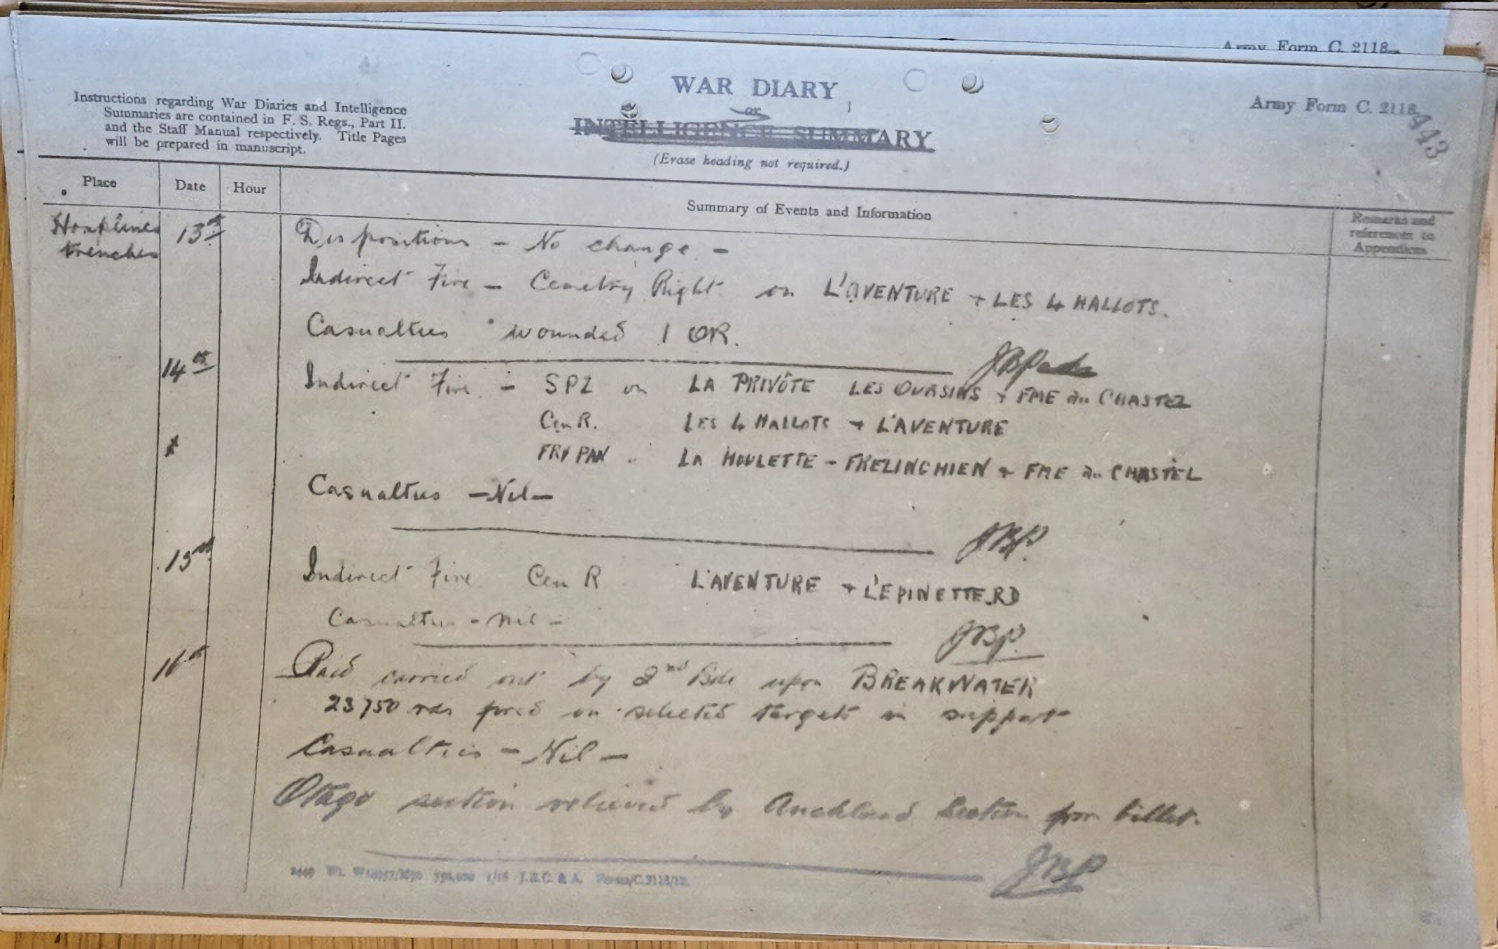 Army Form C. 2118.
Instructions regarding War Diaries and Intelligence
Summaries are contained in F. S. Regs., Part II.
and the Staff Manual respectively. Title Pages
will be prepared in manuscript.
WAR DIARY
or
INTELLIGENCE SUMMARY
(Erase heading not required.)
Army Form C. 2118.
443
Place Date Hour Summary of Events and Information Remarks and references to Appendices
Houplines trenches 13th Dispositions - No change -
Indirect Fire - Cemetry Right on L'AVENTURE + LES 4 HALLOTS.
Casualties wounded 1 OR.
14th Indirect Fire - SP2 on LA PRIVÔTE LES OURSINS + FME du CHASTEL
Cen R. LES 4 HALLOTS + L'AVENTURE
FRY PAN LA HOULETTE - FRELINGHIEN + FME du CHASTEL
Casualties - Nil -
JBP
15th Indirect Fire Cen R L'AVENTURE + L'EPINETTE RD
Casualties - Nil -
JBP.
16th Raid carried out by 2nd Bde upon BREAKWATER
23750 rds fired on selected targets in support
Casualties - Nil -
Otago section relieved by Auckland Section from billet.
JBP
2449 Wt. W14957/M90 750,000 1/16 J.B.C. & A. Forms/C.2118/12.